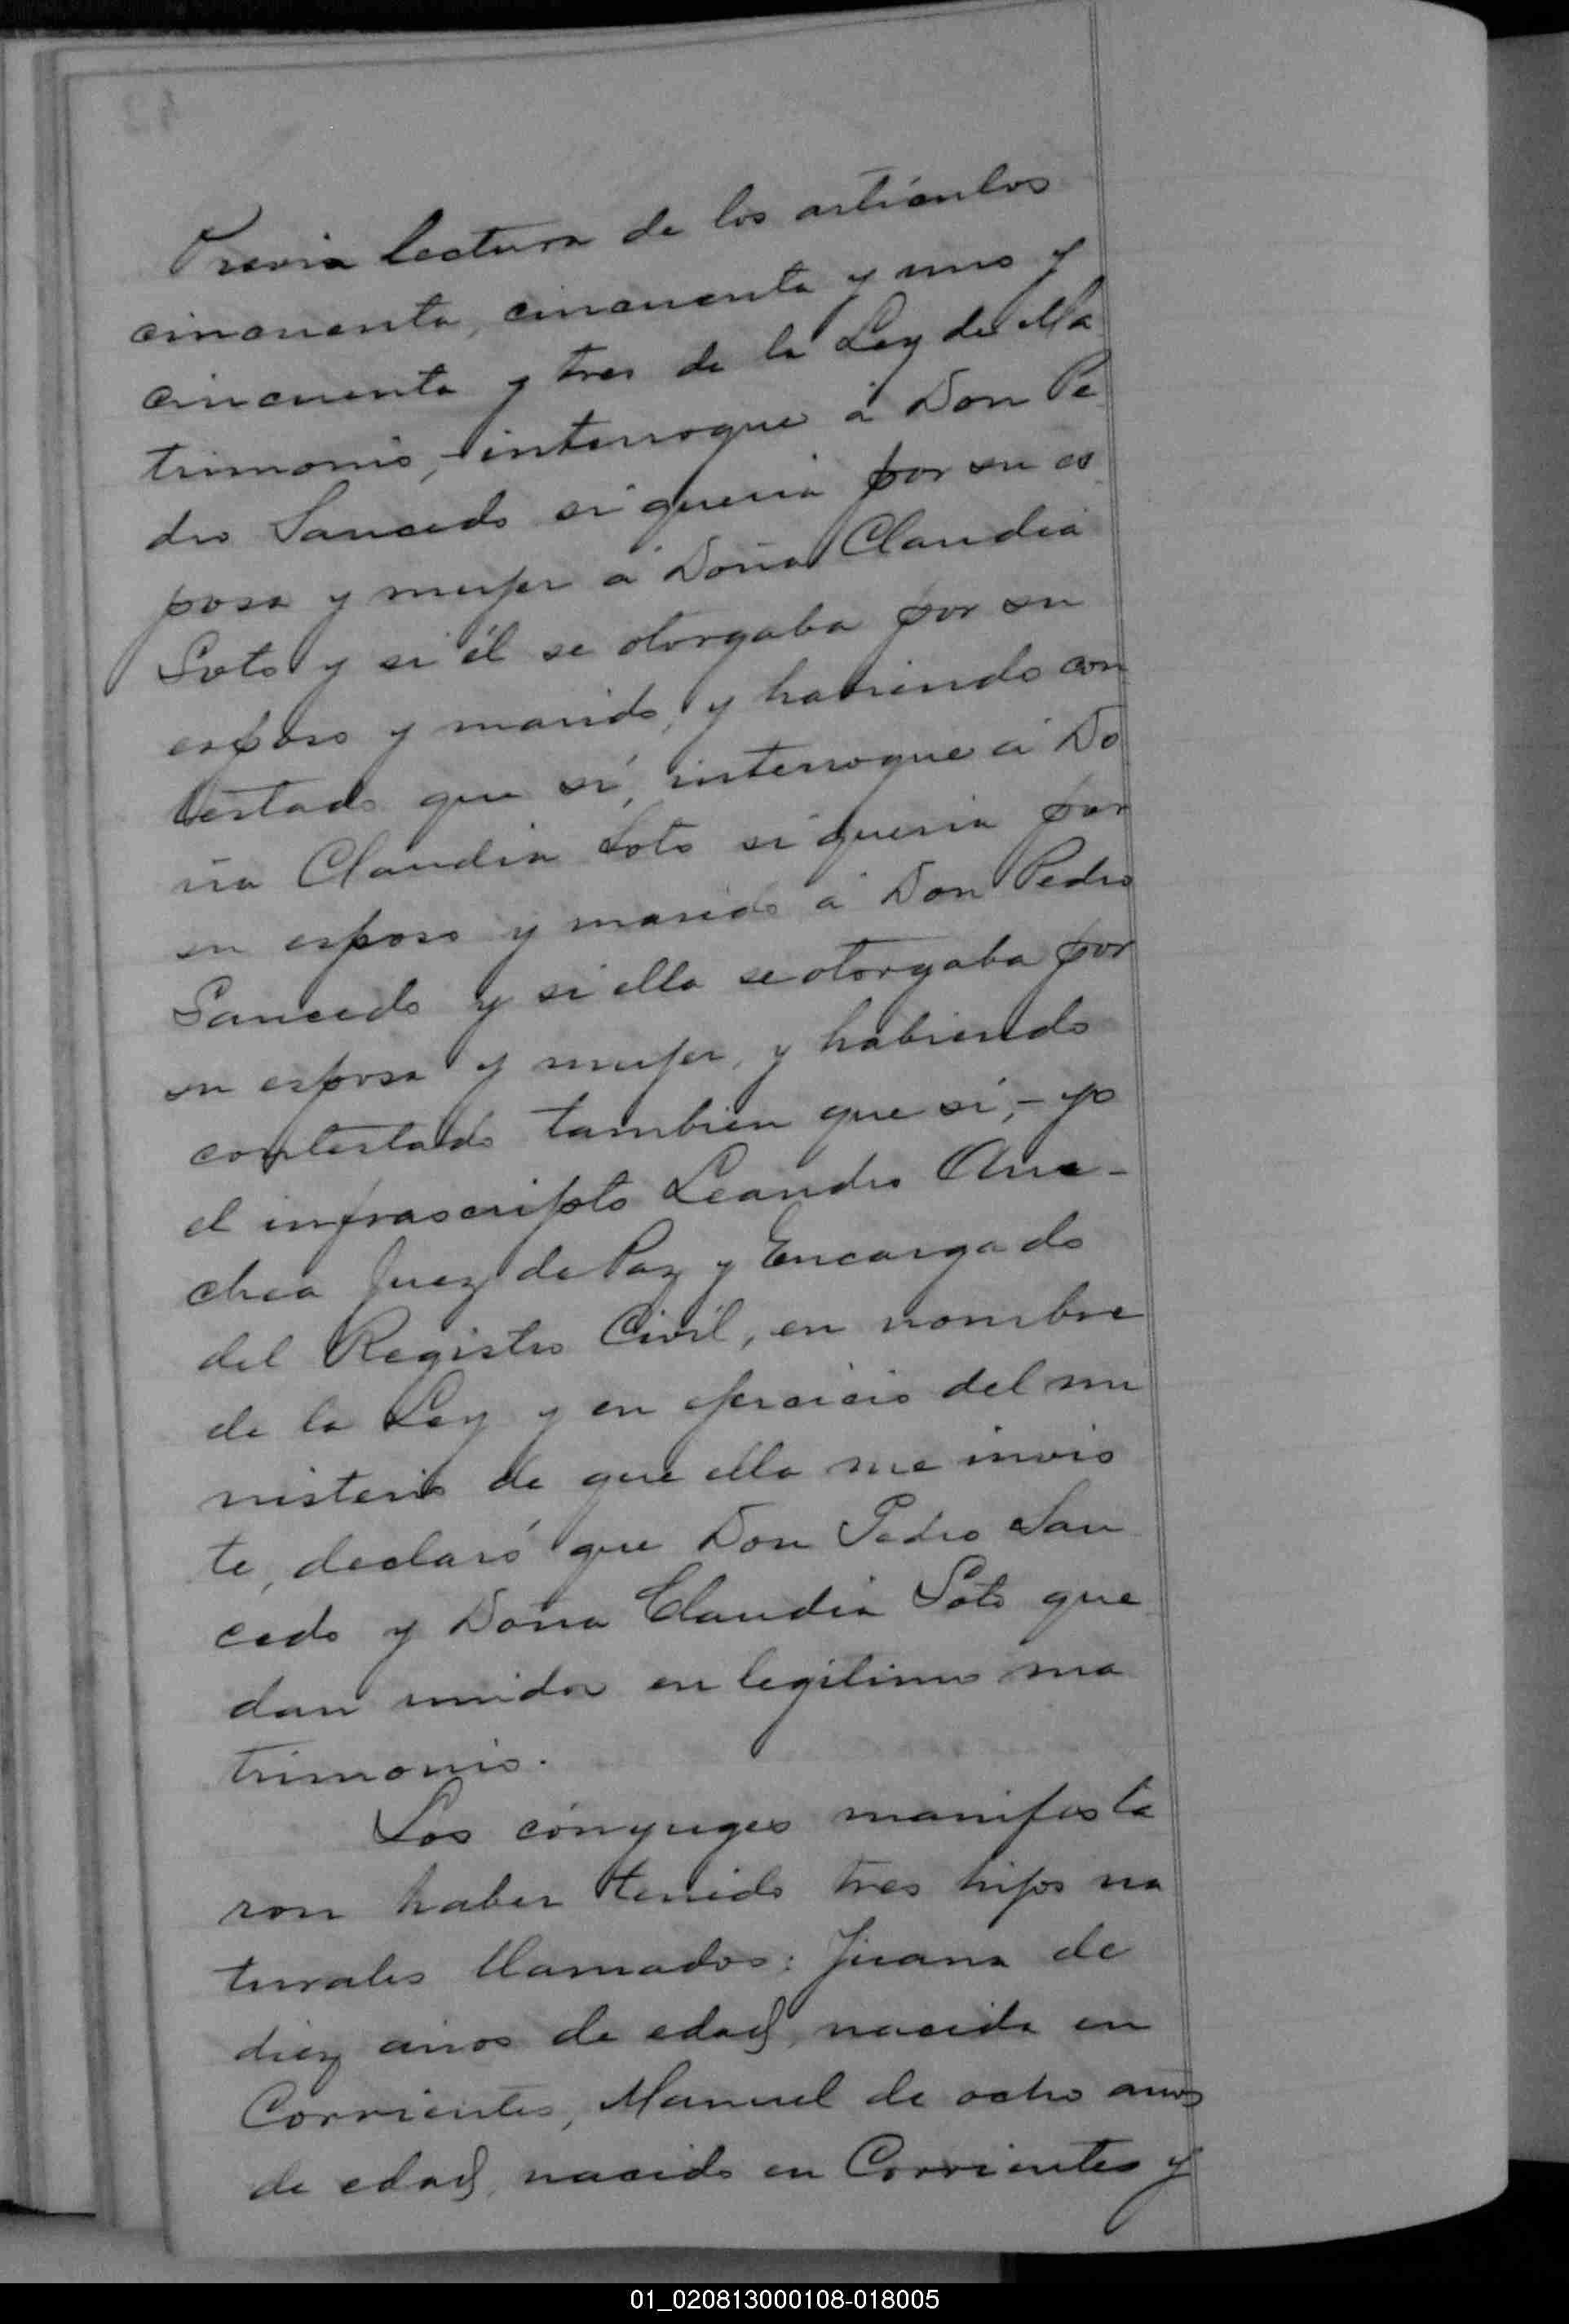 Previa lectura de los artículos
cincuenta, cincuenta y uno y
cincuenta y tres de la Ley de Ma
trimonio, - interrogue á Don Pe
dro Saucedo si queria por su es
posa y mujer á Doña Claudia
Soto y si él se otorgaba por su
esposo y marido, y habiendo con
testado que sí, interrogue á Do
ña Claudia Soto si queria por
su esposo y marido á Don Pedro
Saucedo y si ella se otorgaba por
su esposa y mujer, y habiendo
contestado tambien que sí, - yo
el infrascripto Leandro
Juez de Paz y Encargado
del Registro Civil, en nombre
de la Ley y en ejercicio del mi
nisterio de que ella me invis
te, declaró que Don Pedro Sau
cedo y Doña Claudia Soto que
dan unidos en legitimo ma
trimonio.
Los cónyuges manifesta
ron haber tenido tres hijos na
turales llamados: Juana de
diez años de edad, nacida en
Corrientes, Manuel de ocho años
de edad, nacido en Corrientes y
01_020813000108-018005